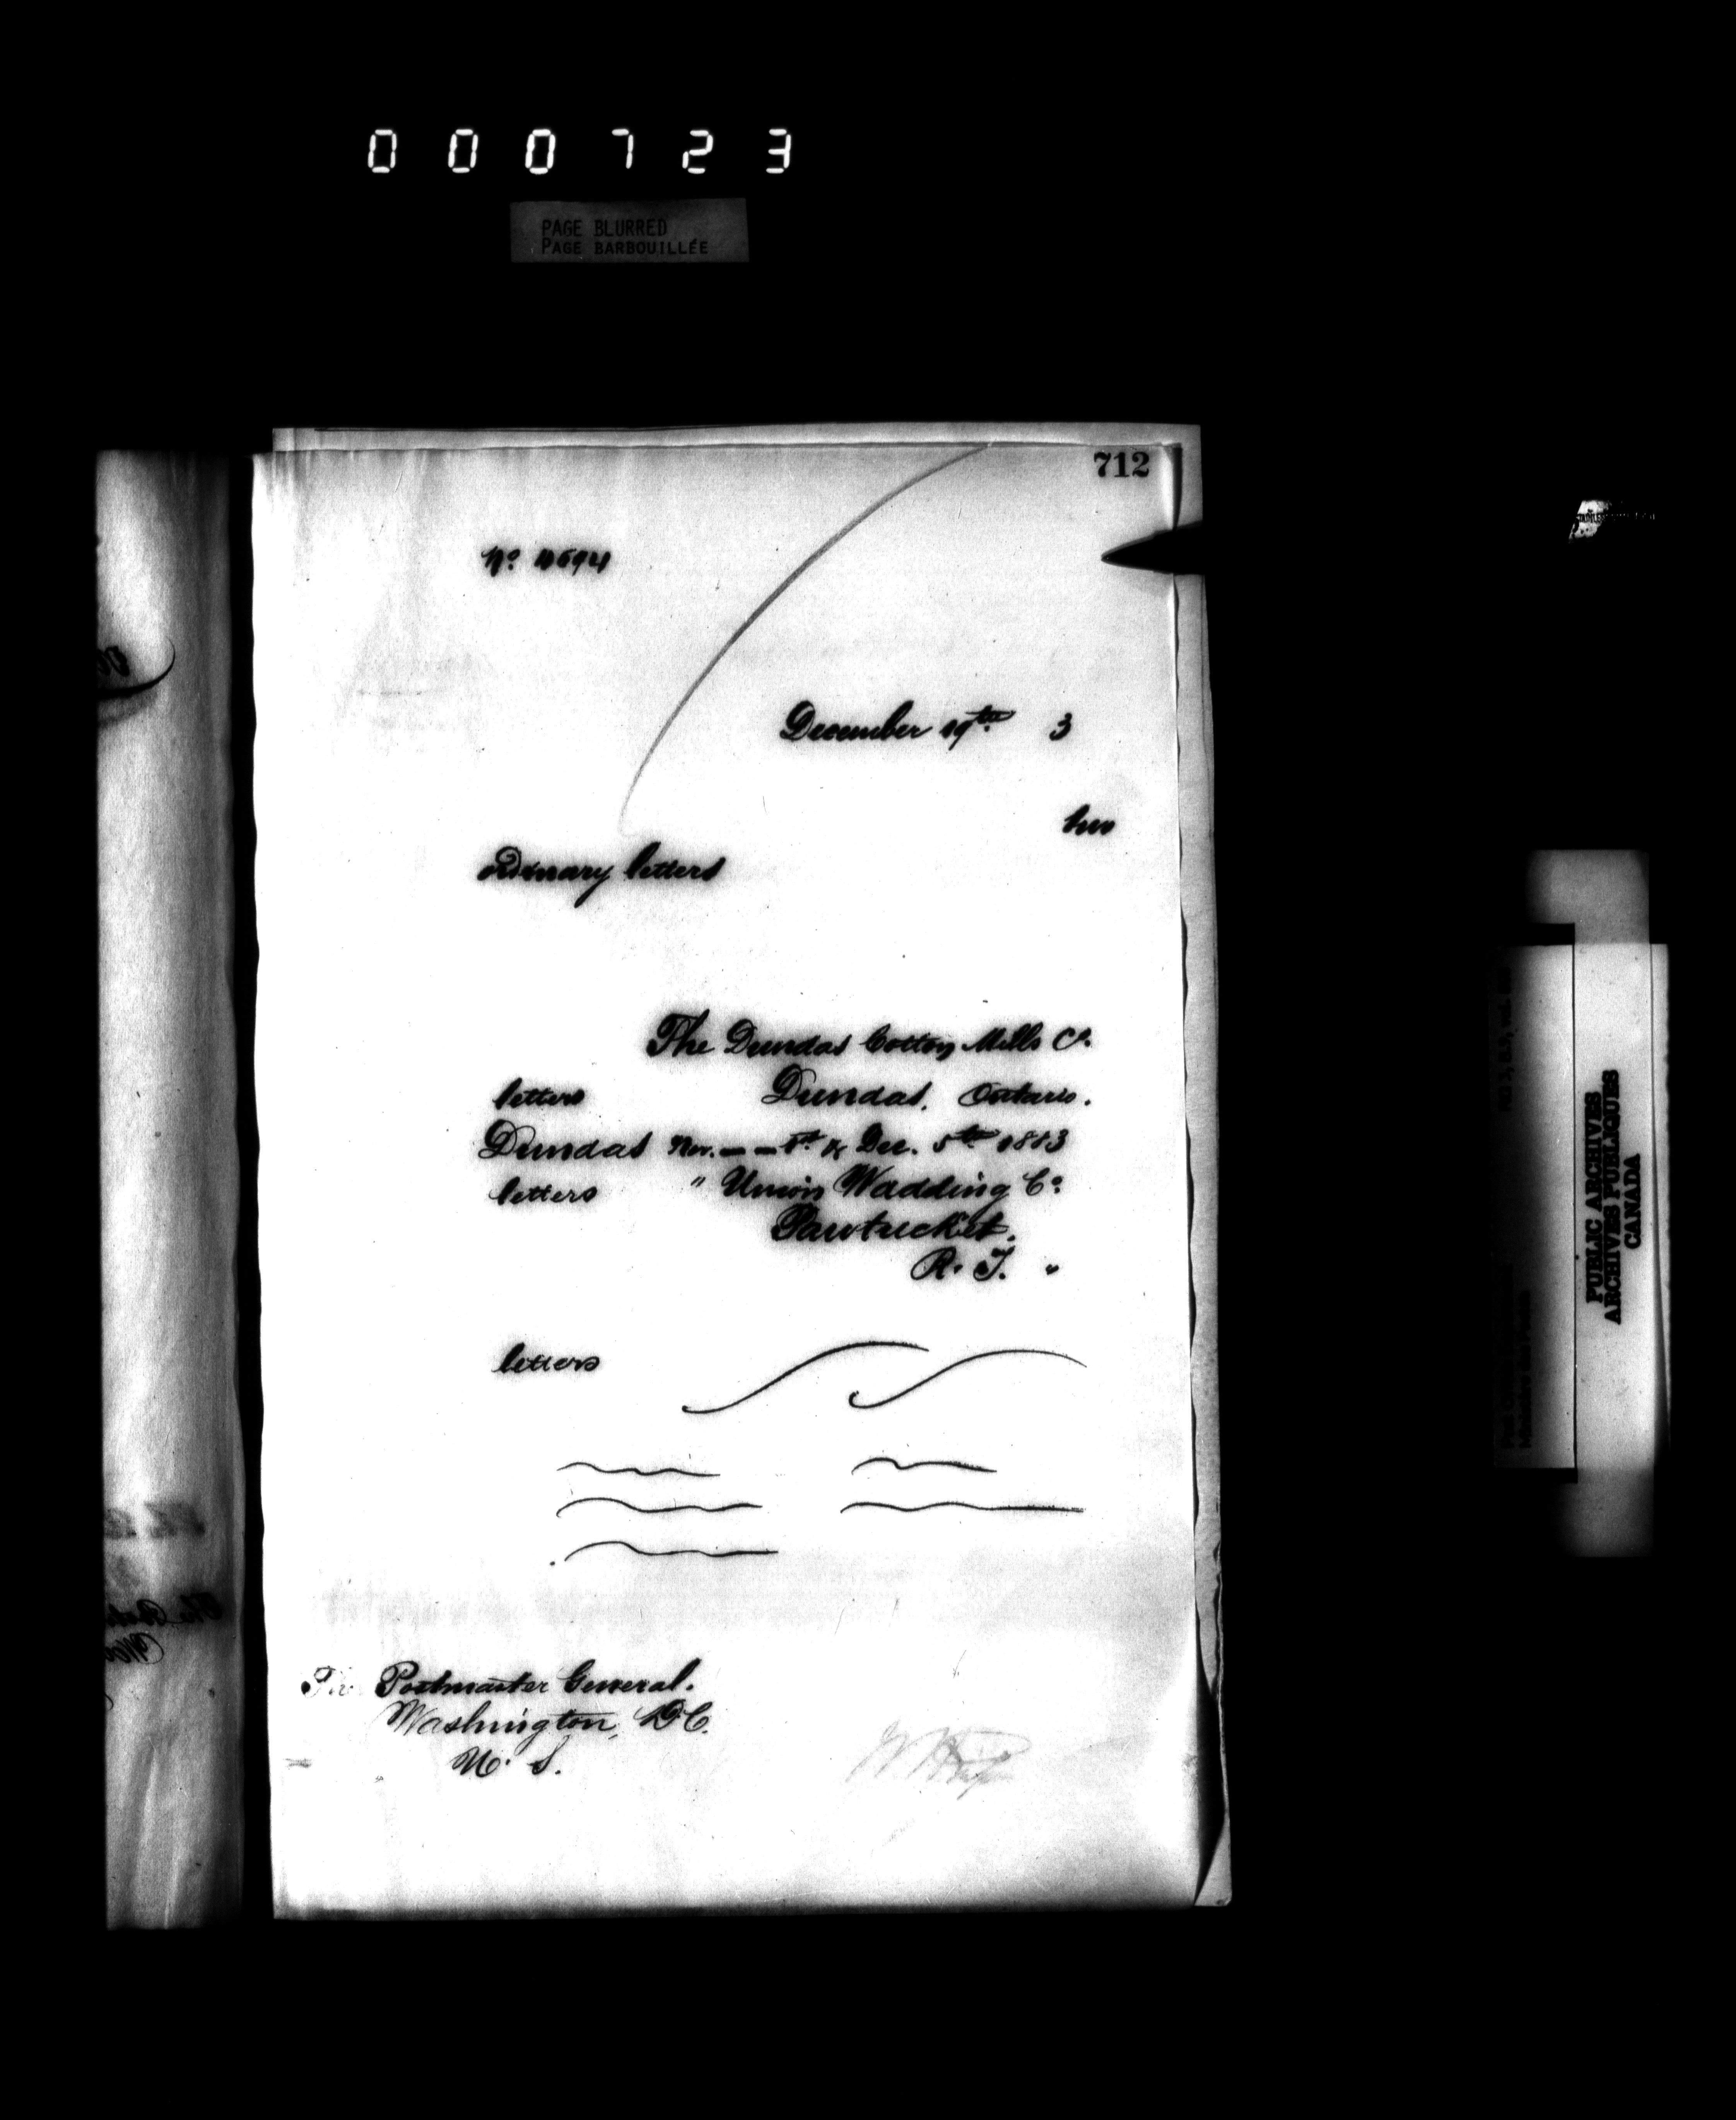 000723
PAGE BLURRED
PAGE BARBOUILLÉE
712
No. 11694
December 19th 3
two
ordinary letters
The Dundas Cotton Mills Co.
letters Dundas, Ontario.
Dundas Nov. — — 1st & Dec. 5th 1883
letters " Union Wadding Co.
Pawtucket,
R. I. "
letters
The Postmaster General.
Washington, D.C.
U. S.
PUBLIC ARCHIVES
ARCHIVES PUBLIQUES
CANADA